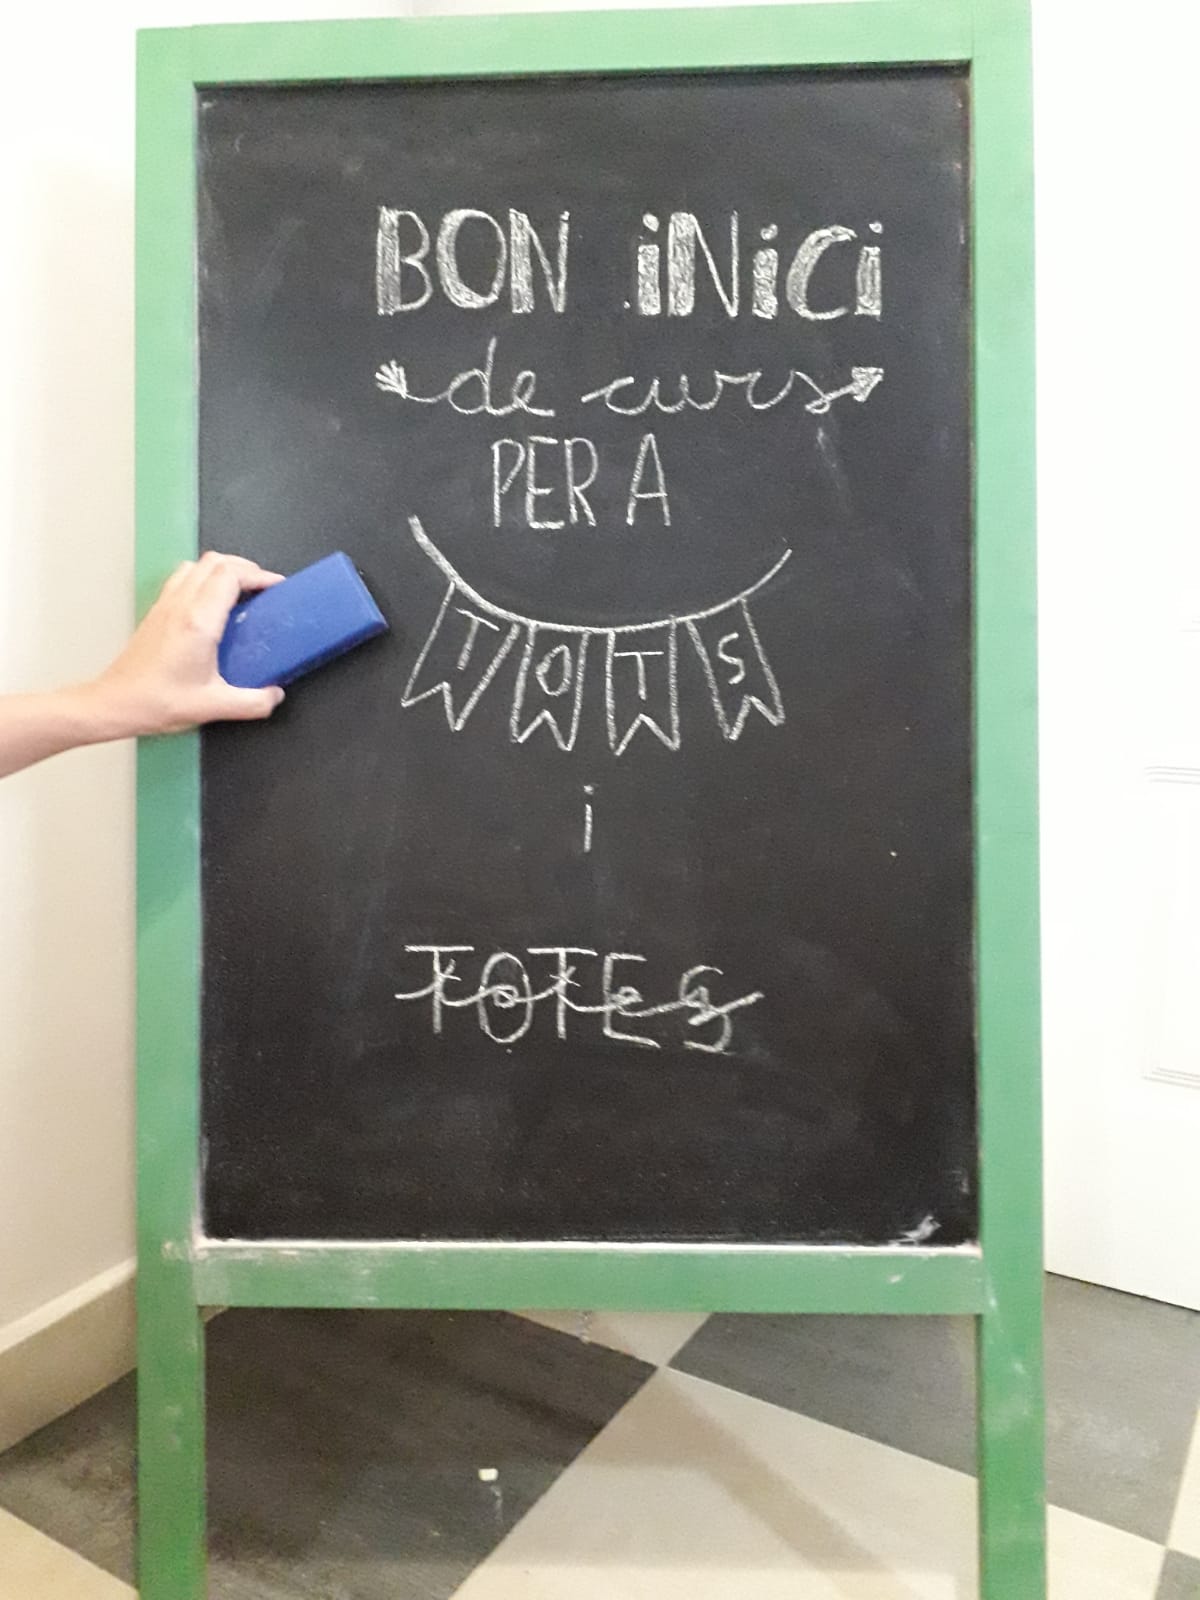 BON iNiCi
de curs
PER A
TOTS
i
TOTES